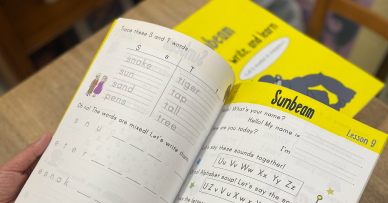 Trace these S and T words.
S
T
snake
tiger
sun
top
sand
tall
pens
tree
Oh no! The words are mixed! Let's write them
s n u
e t e r
e a n a k
Sunbeam
write and learn
Sunbeam
Lesson 9
What's your name?
Hello! My name is
are you today?
I'm
say these sounds together!
Uu Vv Ww Xx Yy Zz
Alphabet soup! Let's say the